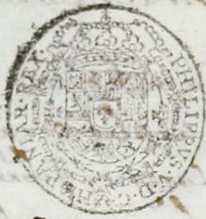 PHILIPPUS·V·D·G·
HISPANIAR·REX